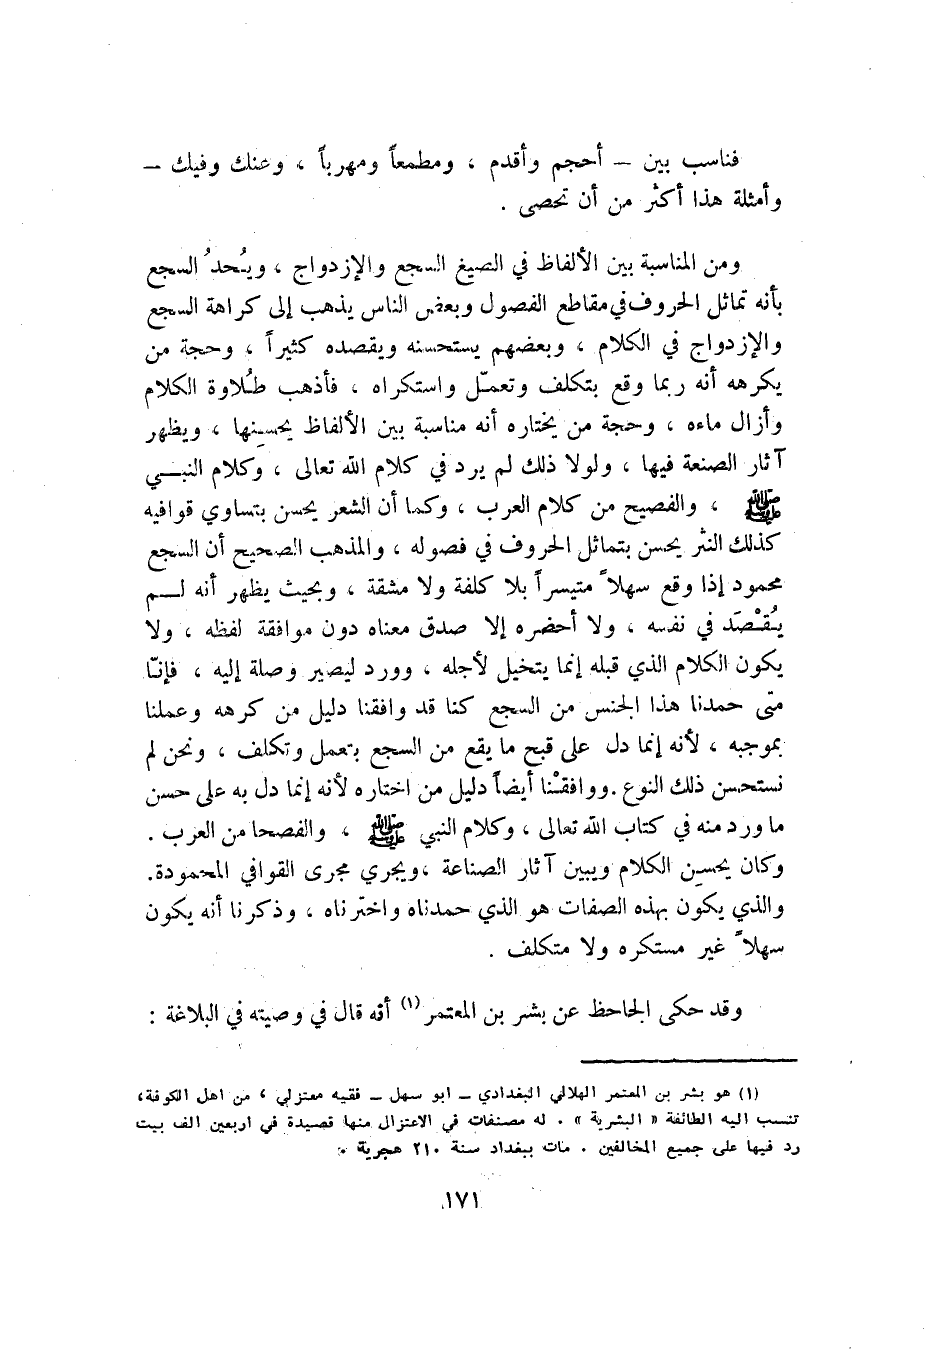 فناسب بين – أحجم وأقدم ، ومطمعاً ومهرباً ، وعنك وفيك –
وأمثلة هذا أكثر من أن تحصى .
ومن المناسبة بين الألفاظ في الصيغ السجع والإزدواج ، ويُحدُ السجع
بأنه تماثل الحروف في مقاطع الفصول وبعض الناس يذهب إلى كراهة السجع
والإزدواج في الكلام ، وبعضهم يستحسنه ويقصده كثيراً ، وحجة من
يكرهه أنه ربما وقع بتكلف وتعمّل واستكراه ، فأذهب طُلاوة الكلام
وأزال ماءه ، وحجة من يختاره أنه مناسبة بين الألفاظ يحسِنها ، ويظهر
آثار الصنعة فيها ، ولولا ذلك لم يرد في كلام الله تعالى ، وكلام النبـي
ﷺ ، والفصيح من كلام العرب ، وكما أن الشعر يحسن بتساوي قوافيه
كذلك النثر يحسن بتماثل الحروف في فصوله ، والمذهب الصحيح أن السجع
محمود إذا وقع سهلاً متيسراً بلا كلفة ولا مشقة ، وبحيث يظهر أنه لـم
يُقْصَد في نفسه ، ولا أحضره إلا صدق معناه دون موافقة لفظه ، ولا
يكون الكلام الذي قبله إنما يتخيل لأجله ، وورد ليصير وصلة إليه ، فإنّا
متى حمدنا هذا الجنس من السجع كنا قد وافقنا دليل من كرهه وعملنا
بموجبه ، لأنه إنما دل على قبح ما يقع من السجع بتعمل وتكلف ، ونحن لم
نستحسن ذلك النوع . ووافقْنا أيضاً دليل من اختاره لأنه إنما دل به على حسن
ما ورد منه في كتاب الله تعالى ، وكلام النبي ﷺ ، والفصحا من العرب .
وكان يحسِن الكلام ويبين آثار الصناعة ، ويجري مجرى القوافي المحمودة.
والذي يكون بهذه الصفات هو الذي حمدناه واخترناه ، وذكرنا أنه يكون
سهلاً غير مستكره ولا متكلف .
وقد حكى الجاحظ عن بشر بن المعتمر (١) أنه قال في وصيته في البلاغة :
(١) هو بشر بن المعتمر الهلالي البغدادي – ابو سهل – فقيه معتزلي ، من اهل الكوفة،
تنسب اليه الطائفة « البشرية » . له مصنفات في الاعتزال منها قصيدة في اربعين الف بيت
رد فيها على جميع المخالفين . مات ببغداد سنة ٢١٠ هجرية .
١٧١